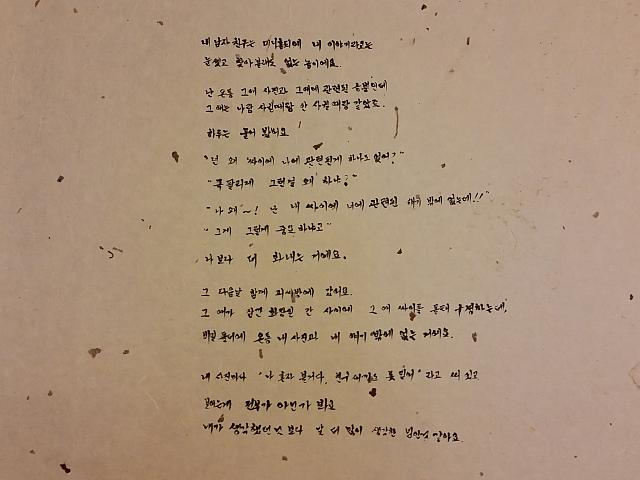 내 남자 친구는 미니홈피에 내 이야기라고는
눈씻고 찾아볼래도 없는 놈이에요.
난 온통 그애 사진과 그애에 관련된 글뿐인데
그애는 나랑 사귈때랑 안 사귈때랑 같았죠.
하루는 물어 봤어요
"넌 왜 싸이에 나에 관련된게 하나도 없어?"
"쪽팔리게 그런걸 왜 하냐?"
"나 왜~! 난 내 싸이에 너에 관련된 얘기 밖에 없는데!!"
"그게 그렇게 중요하냐고"
나보다 더 화내는 거예요.
그 다음날 함께 피씨방에 갔어요.
그 애가 잠깐 화장실 간 사이에 그 애 싸이를 몰래 구경하는데,
비밀 폴더에 온통 내 사진과 내 얘기 밖에 없는 거에요.
내 사진마다 "나 혼자 본거다. 못 믿어" 라고 써 있고
보이는게 전부가 아닌가 봐요
내가 생각했던 것 보다 날 더 많이 생각한 것 같아요.